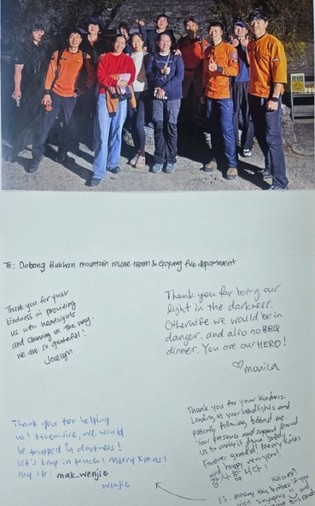 To: Dobong Bukhan mountain rescue team & Goyang fire department
Thank you for your
kindness in providing
us with headlights
and clearing us the way.
we are so grateful!
Jocelyn
Thank you for being our
light in the darkness.
Otherwise we would be in
danger, and also no BBQ
dinner. You are our HERO!
♡ monica
Thank you for helping
us! Otherwise, we would
be trapped in darkness!
Let's keep in touch! Merry Xmas!
my IG: mak_wenjie
wenjie
Thank you for your kindness.
Lending us your headlights and
patiently following behind me.
Your presence and support
us to
Forever grateful! Merry Xmas
and happy new year!
감사합니다!
P.S.